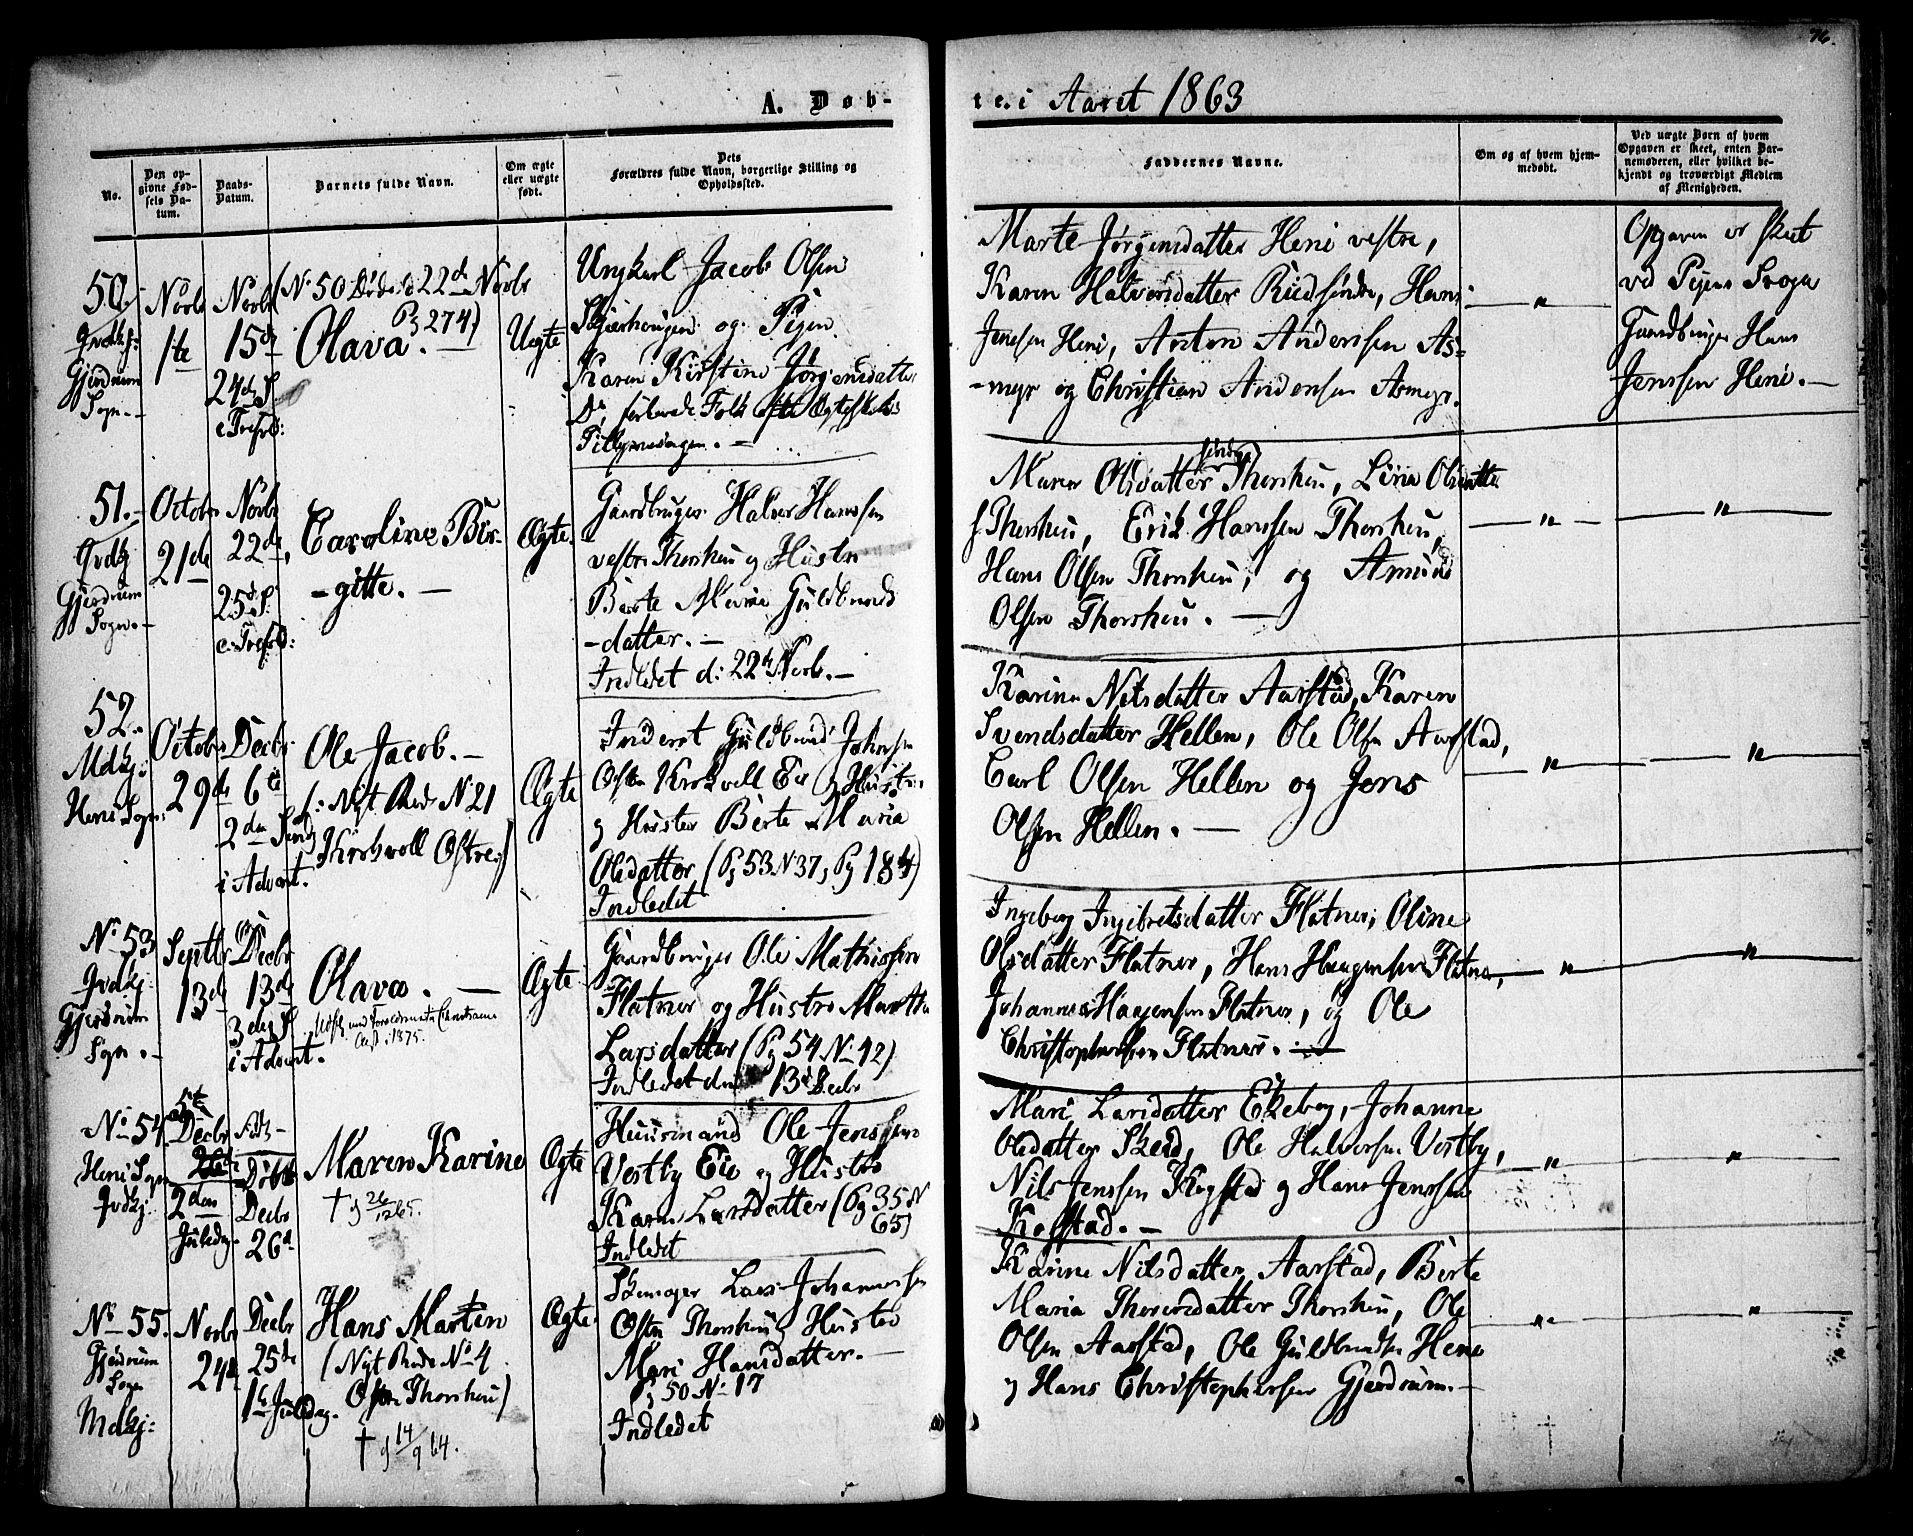 76.
A. Døb-
te. i Aaret 1863
No.
Den op-
givne Fød-
sels Da-
tum.
Daabs-
Datum.
Barnets fulde Navn.
Om ægte
eller uægte
født.
Dets
Forældres fulde Navn, borgerlige Stilling og
Opholdssted.
Faddernes Navne.
Om og af hvem hjem-
medøbt.
Ved uægte Børn af hvem
Opgaven er skeet, enten Bar-
nemoderen, eller hvilket be-
kjendt og troværdigt Medlem
af Menigheden.
50.
Gjerdrum
Sogn.-
Novbr
1te
Novbr
15de
24de S.
e. Trefold:
(No 50 Døde d 22d Novbr
Pg 274)
Olava. -
Uægte
Ungkarl Jacob Olsen
og Pigen
Karen Kirstine Jørgensdatter
Marte Jørgensdatter Heni vestre,
Karen Halvorsdatter Rudsindre, Hans
Jensen Heni, Anton Andersen As=
-myr og Christian Andersen Asmyr.
"
Opgaven er skeet
ved Pigens Svoger
Gaardbruger Hans
Jenssen Heni. -
51.-
Gvdkj
Gjerdrum
Sogn.-
Octobr
21de
Novbr
22de,
25de S.
e. Trefold:
Caroline Bir-
-gitte. -
Ægte.
Gaardbruger Halvor Hanssen
vestre Thorsheu og Hustro
Berte Marie Guldbrands
-datter. -
Indledet d: 22de Novb. -
Maren Olsdatter søndre Thorsheu, Lina Olsdatter
s. Thorsheu, Erik Hanssen Thorsheu,
Hans Olsen Thorsheu, og Amund
Olsen Thorsheu. -
"
"
52.
Mdkj:
Heni Sogn:
Octobr
29de
Decbr
6te
2den Sønd
i Advent.
Ole Jacob. -
(: Nyt Rode No 21
Kirkvoll Østre:)
Ægte
Inderst Guldbrand Johnsen
Østre Kirkvoll Eie og Hustro
og Hustro Berte Maria
Olsdatter (Pg 53 No 37, Pg 184)
Indledet
Karine Nilsdatter Aarstad, Karen
Svendsdatter Hellen, Ole Olsen Aarstad,
Carl Olsen Hellen og Jens
Olsen Hellen. -
"
"
No 53
Gvdkj:
Gjerdrum
Sogn.-
Septbr
13de
Decbr
13de
3die S
i Advent.
Olava. -
1875.
Ægte
Gaardbruger Ole Mathissen
Flatner og Hustro Marthe
Larsdatter (Pg 54 No 42)
Indledet den 13de Decbr
Ingeborg Ingebretsdatter Flatner, Oline
Olsdatter Flatner, Hans Haagensen Flatner,
Johannes Haagensen Flatner, og Ole
Christophersen Flatner.
"
"
No 54
Heni Sogn
Gvdkj.
5te
Decbr
2den
Juledag.
Døbt
Decbr
26d
Maren Karine
† d 26/12 65.
Ægte
Huusmand Ole Jenssen
Vestby Eie og Hustro
Karen Larsdatter (Pg 35 No
65)
Indledet
Mari Larsdatter Ekeberg, Johanne
Olsdatter Skerd, Ole Halvorsen Vestby,
Nils Jenssen Kogstad og Hans Jenssen
Kogstad. -
"
"
No 55.
Gjerdrum
Sogn
Mdkj:
Novbr
24d
Decbr
25de
1ste Juledag.
Hans Martin
(Nyt Rode No 4
Østre Thorsheu)
† d 14/9 64.
Ægte.
Skomager Lars Johannessen
Østre Thorsheu og Hustro
Mari Hansdatter. -
Pg 50 No 17
Indledet
Karine Nilsdatter Aarstad, Berte
Maria Thorersdatter Thorsheu, Ole
Olsen Aarstad, Ole Guldbrandsen Heni
og Hans Christophersen Gjerdrum. -
"
"